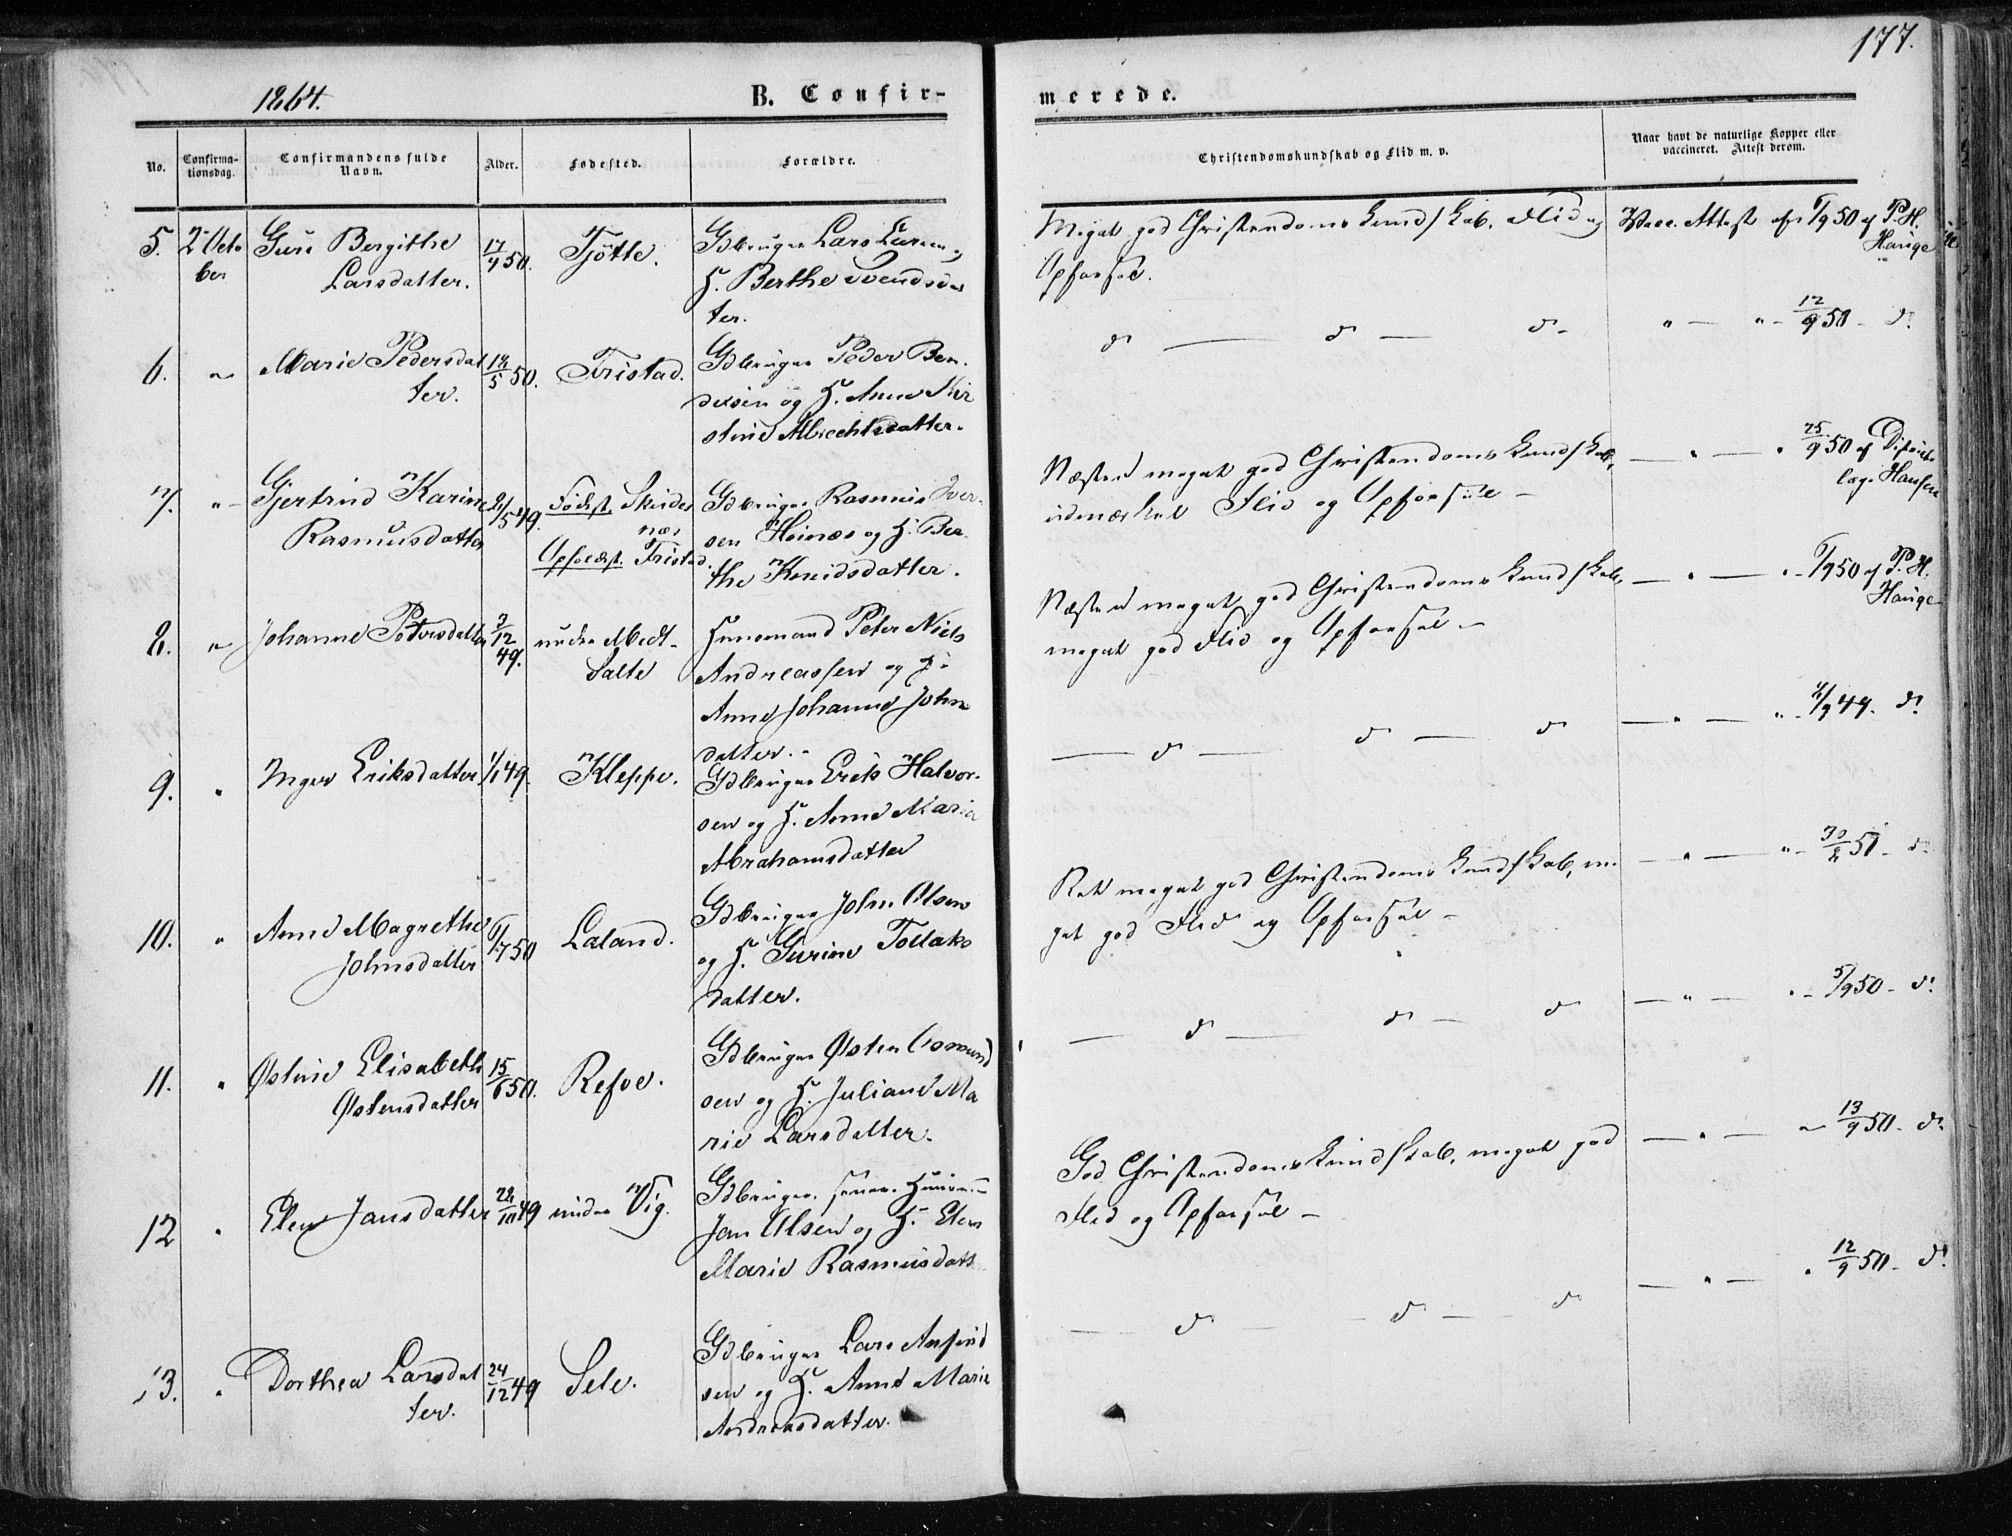 177.
1864.
B. Confir-
merede.
No.
Confirma-
tionsdag.
Confirmandens fulde
Navn.
Alder.
Fødested.
Forældre.
Christendomskundskab og Flid m. v.
Naar havt de naturlige Kopper eller
vaccineret. Attest derom.
5. 2 Octo
ber
Guri Bergithe
Larsdatter.
17/4 50.
Tjøtte.
Gdbruger Lars Larsen,
H. Berthe Svendsdat
ter.
Meget god Christendoms Kundskab, Flid og
Opførsel.
Vacc. Attest af 6/9 50 af P. H.
Hauge
6. "
Marie Pedersdat
ter.
18/5 50.
Tristad.
Gdbruger Peder Ben
dixen og H. Anne Kir
stine Albrechtsdatter.
d° — d° — d° —
" — " — 12/9 50 — d°
7. "
Gjertrud Karine
Rasmusdatter
2/5 49.
Fødest. Skeides
nær
Opfødest. Tristad.
Gdbruger Rasmus Iver-
sen Hoinæs og H. Ber
the Knudsdatter.
Næsten meget god Christendoms Kundskab,
udmærket Flid og Opførsel —
— " — " 25/9 50 af Districts
læge Hansen
8. "
Johanne Petersdatter
3/12 49.
under Medt-
Salte
Huusmand Peter Niels
Andreassen og H.
Anne Johanne Johns
datter. -
Næsten meget god Christendoms Kundskab,
meget god Flid og Opførsel —
— " — " — 6/9 50 af P. H.
Hauge
9. "
Inger Eriksdatter
1/1 49.
Kleppe.
Gdbruger Erik Halvor-
sen og H. Anne Maria
Abrahamsdatter
— d° — d° — d°
— " — " — 4/9 49. d°
10. "
Anne Magrethe
Johnsdatter
6/7 50
Laland.
Gdbruger John Olsen
og H. Gurine Tollaks
datter.
Ret meget god Christendoms Kundskab, me
get god Flid og Opførsel —
— " — " — 30/8 51 — d°
11. "
Østine Elisabeth
Østensdatter
15/6 50.
Refve.
Gdbruger Østen
sen og H. Juliane Ma
rie Larsdatter.
— d° — d° — d°
— " — " — 5/9 50 — d°
12 "
Elen Jansdatter
28/10 49
under Vig.
Gdbruger,
Jan Olsen og H. Elen
Marie Rasmusdatt
God Christendoms Kundskab, meget god
Flid og Opførsel —
— " — " 13/9 50 — d°
13. "
Dorthea Larsdat
ter.
24/12 49
Sele.
Gdbruger Lars Anfind
sen og H. Anne Marie
Andreasdatter.
— d° — d° — d°
— " — " 12/9 50 — d°